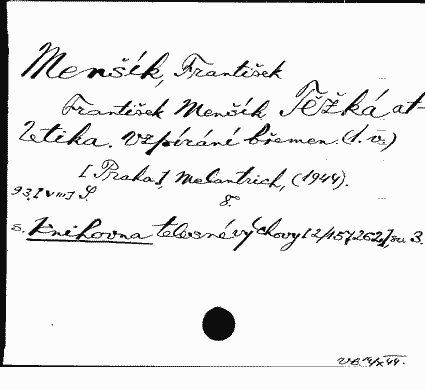 Menšík, František
František Menšík, Těžká at-
letika. Vzpírání břemen. (1. v.)
[Praha], Melantrich, (1944).
93, [VIII] S. 8°
s. Knihovna telesné výchovy [2/157262], sv. 3.